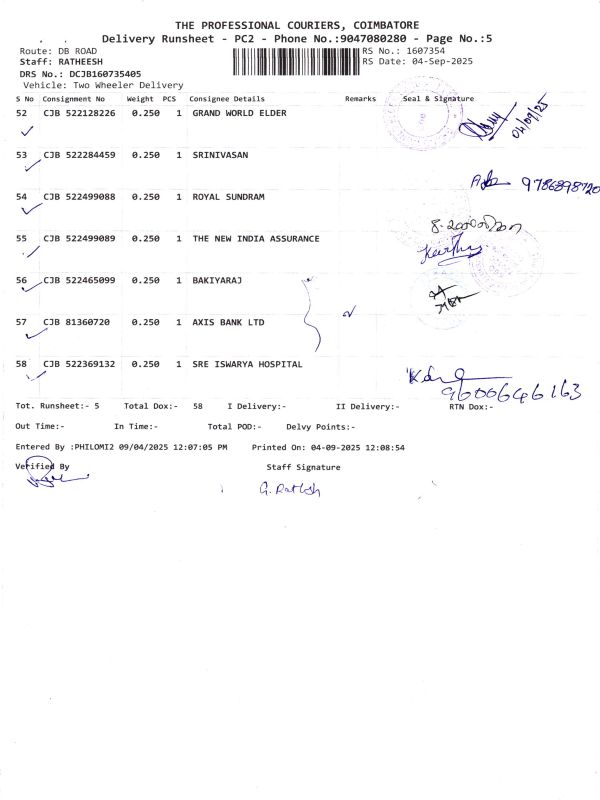 THE PROFESSIONAL COURIERS, COIMBATORE
Delivery Runsheet - PC2 - Phone No.:9047080280 - Page No.:5
Route: DB ROAD RS No.: 1607354
Staff: RATHEESH RS Date: 04-Sep-2025
DRS No.: DCJB160735405
Vehicle: Two Wheeler Delivery
S No Consignment No Weight PCS Consignee Details Remarks Seal & Signature
52 CJB 522128226 0.250 1 GRAND WORLD ELDER
04/09/25
53 CJB 522284459 0.250 1 SRINIVASAN
9786898720
54 CJB 522499088 0.250 1 ROYAL SUNDRAM
55 CJB 522499089 0.250 1 THE NEW INDIA ASSURANCE
56 CJB 522465099 0.250 1 BAKIYARAJ
57 CJB 81360720 0.250 1 AXIS BANK LTD
58 CJB 522369132 0.250 1 SRE ISWARYA HOSPITAL
9600646163
Tot. Runsheet:- 5 Total Dox:- 58 I Delivery:- II Delivery:- RTN Dox:-
Out Time:- In Time:- Total POD:- Delvy Points:-
Entered By :PHILOMI2 09/04/2025 12:07:05 PM Printed On: 04-09-2025 12:08:54
Verified By Staff Signature
G. Ratlosh